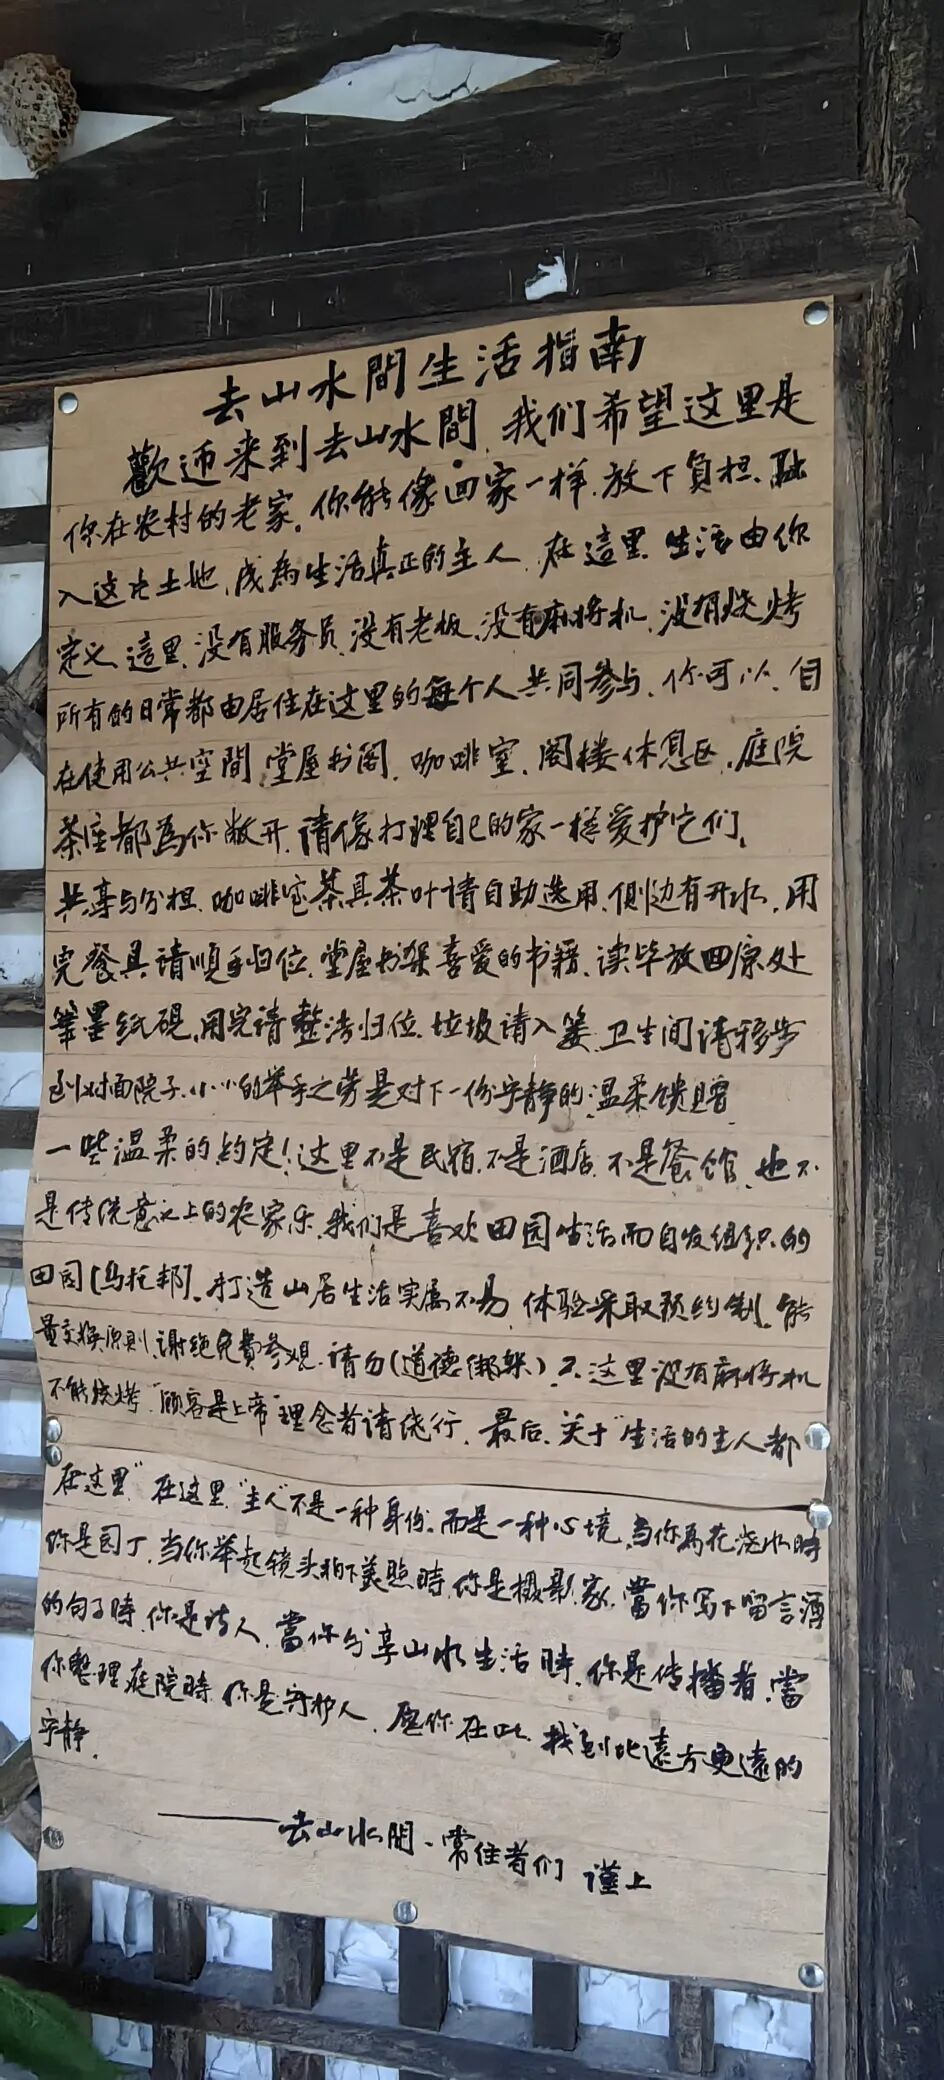 去山水間生活指南
歡迎来到去山水間.我们希望这里是
你在农村的老家.你能像回家一样.放下負担.融
入这片土地,成為生活真正的主人.在這里 生活由你
定义.這里.没有服务员.没有老板.没有麻将机.没有烧烤
所有的日常都由居住在这里的每个人共同参与.你可以.自
在使用公共空間.堂屋书阁.咖啡室.阁楼休息区.庭院
茶座都為你敞开.請像打理自己的家一樣爱护它们.
共享与分担.咖啡室茶具茶叶请自助选用.侧边有开水.用
完餐具請順手归位.堂屋书架喜爱的书籍.读毕放回原处
筆墨纸砚,用完请整洁归位.垃圾请入篓.卫生间请移步
到对面院子.小小的举手之劳是对下一份宁静的温柔馈赠
一些温柔的約定!这里不是民宿.不是酒店.不是餐馆.也不
是传统意义上的农家乐.我们是喜欢田园生活而自发组织的
田园[乌托邦].打造山居生活实属不易.体验采取预约制.能
量交换原則.谢绝免費参观.请勿(道德绑架)2.这里没有麻将机
不能烧烤."顾客是上帝"理念者请绕行.最后.关于"生活的主人都
在这里"在这里."主人"不是一种身份.而是一种心境.当你為花浇水時
你是园丁.当你举起镜头拍下美照時.你是摄影家.當你写下留言酒
的句子時.你是诗人.當你分享山水生活時.你是传播者.當
你整理庭院時.你是守护人.愿你在此.找到比遠方更遠的
宁静.
———去山水間.常住者们 謹上